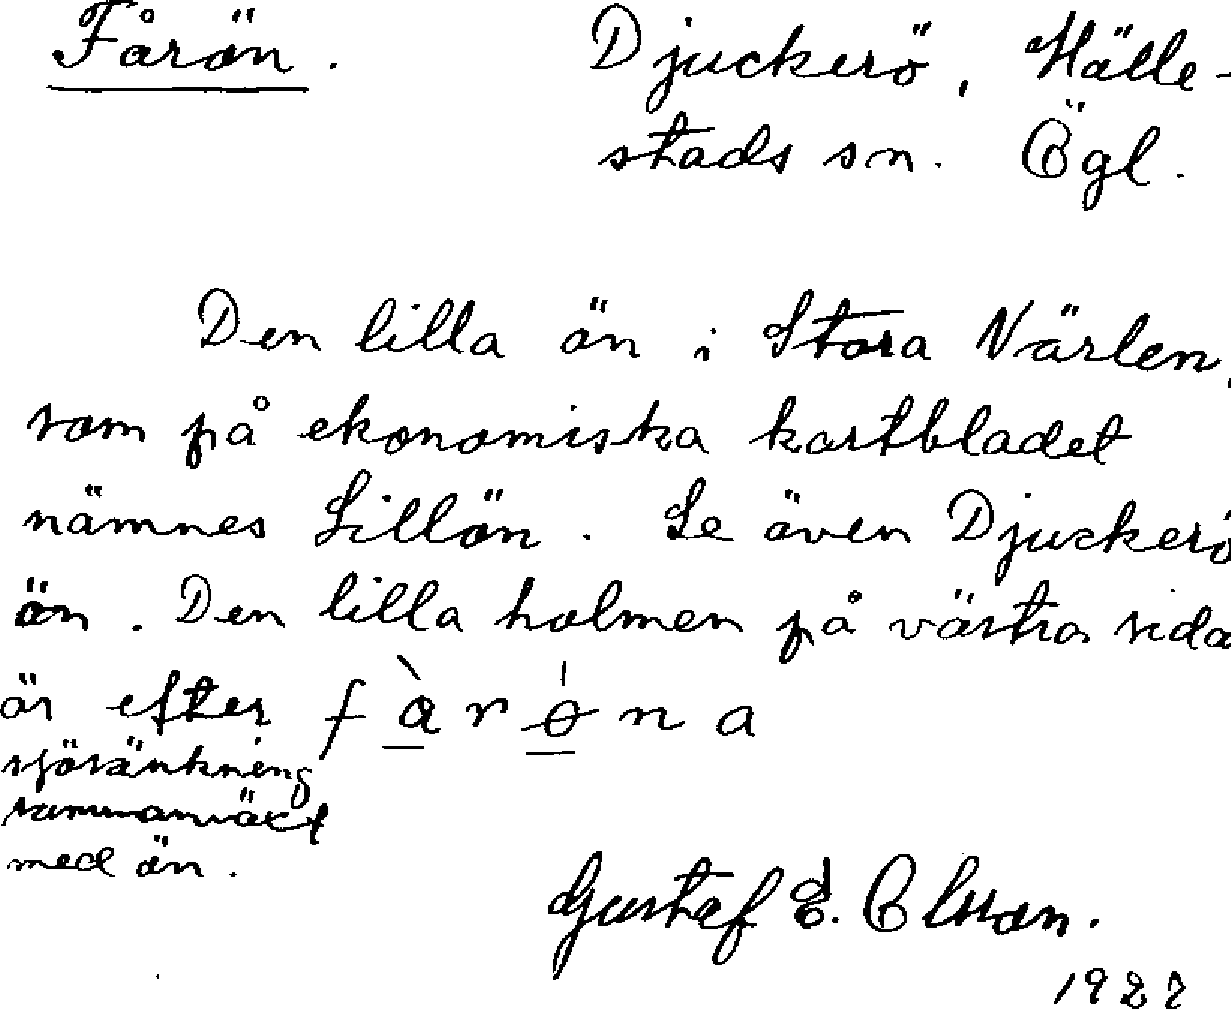 Fårön. Djuckerö, Hälle-
stads sn. Ögl.
Den lilla ön i Stora Närlen,
som på ekonomiska kartbladet
nämnes Lillön. Se även Djuckerö
ön. Den lilla holmen på västra sida
är efter fàrɵ́na
sjösänkning
sammanväxt
med ön.
Gustaf E. Olsson.
1927